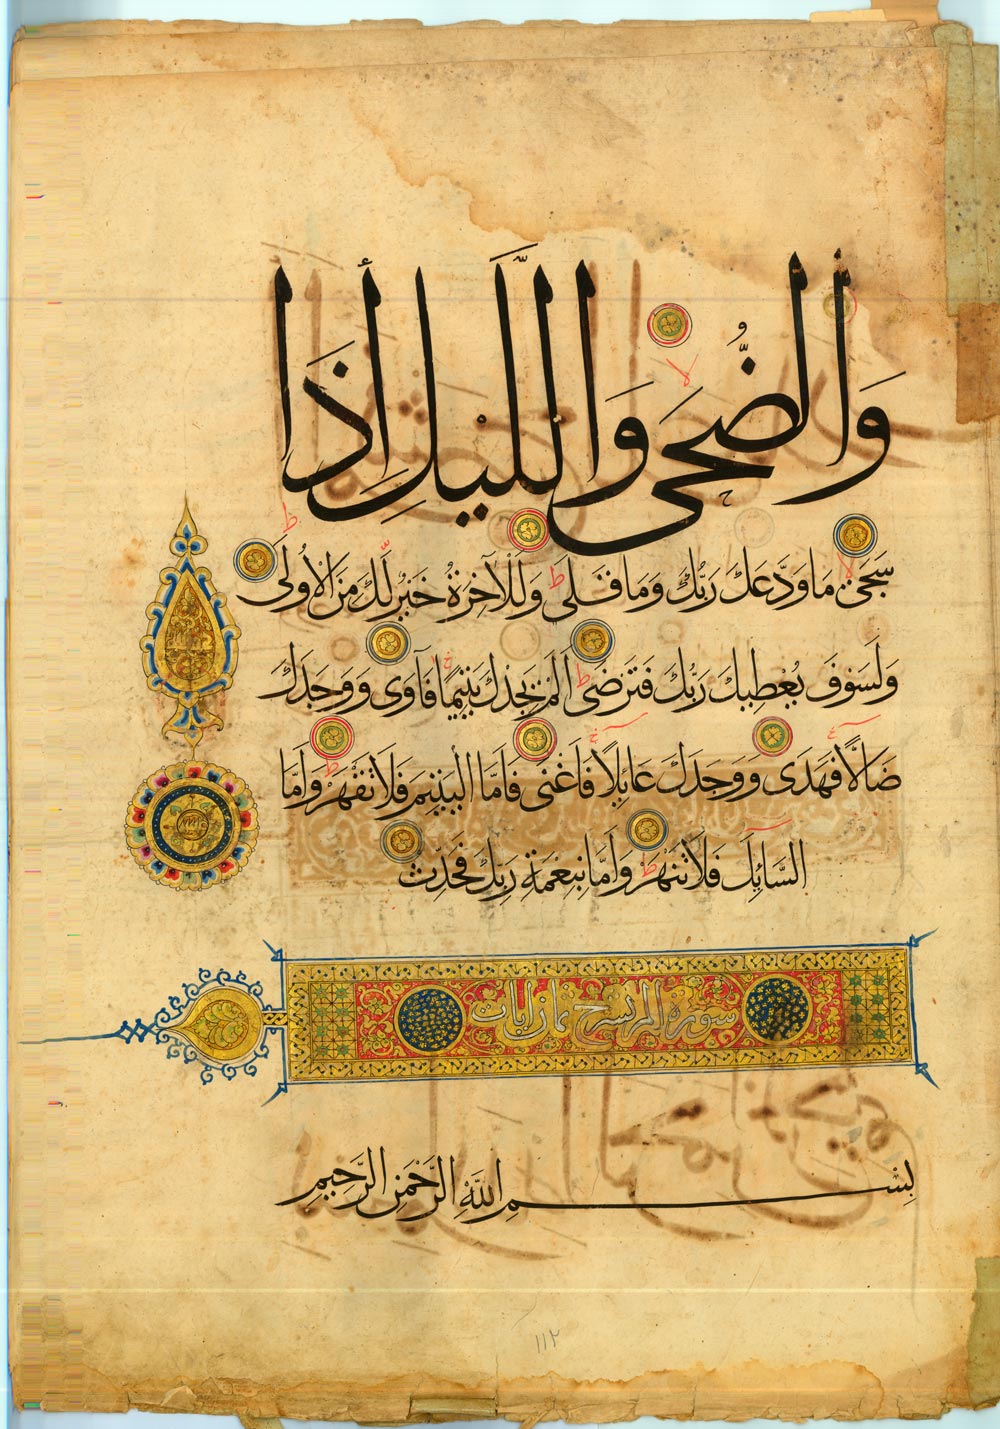 وَالضُّحَى وَاللَّيْلِ إِذَا
سَجَى مَا وَدَّعَكَ رَبُّكَ وَمَا قَلَى وَلَلْآخِرَةُ خَيْرٌ لَّكَ مِنَ الْأُولَى
وَلَسَوْفَ يُعْطِيكَ رَبُّكَ فَتَرْضَى أَلَمْ يَجِدْكَ يَتِيمًا فَآوَى وَوَجَدَكَ
ضَالًّا فَهَدَى وَوَجَدَكَ عَايِلًا فَأَغْنَى فَأَمَّا الْيَتِيمَ فَلَا تَقْهَرْ وَأَمَّا
السَّايِلَ فَلَا تَنْهَرْ وَأَمَّا بِنِعْمَةِ رَبِّكَ فَحَدِّثْ
سورة الم نشرح ثمان ايات
بِسْمِ اللَّهِ الرَّحْمَنِ الرَّحِيمِ
١١٢